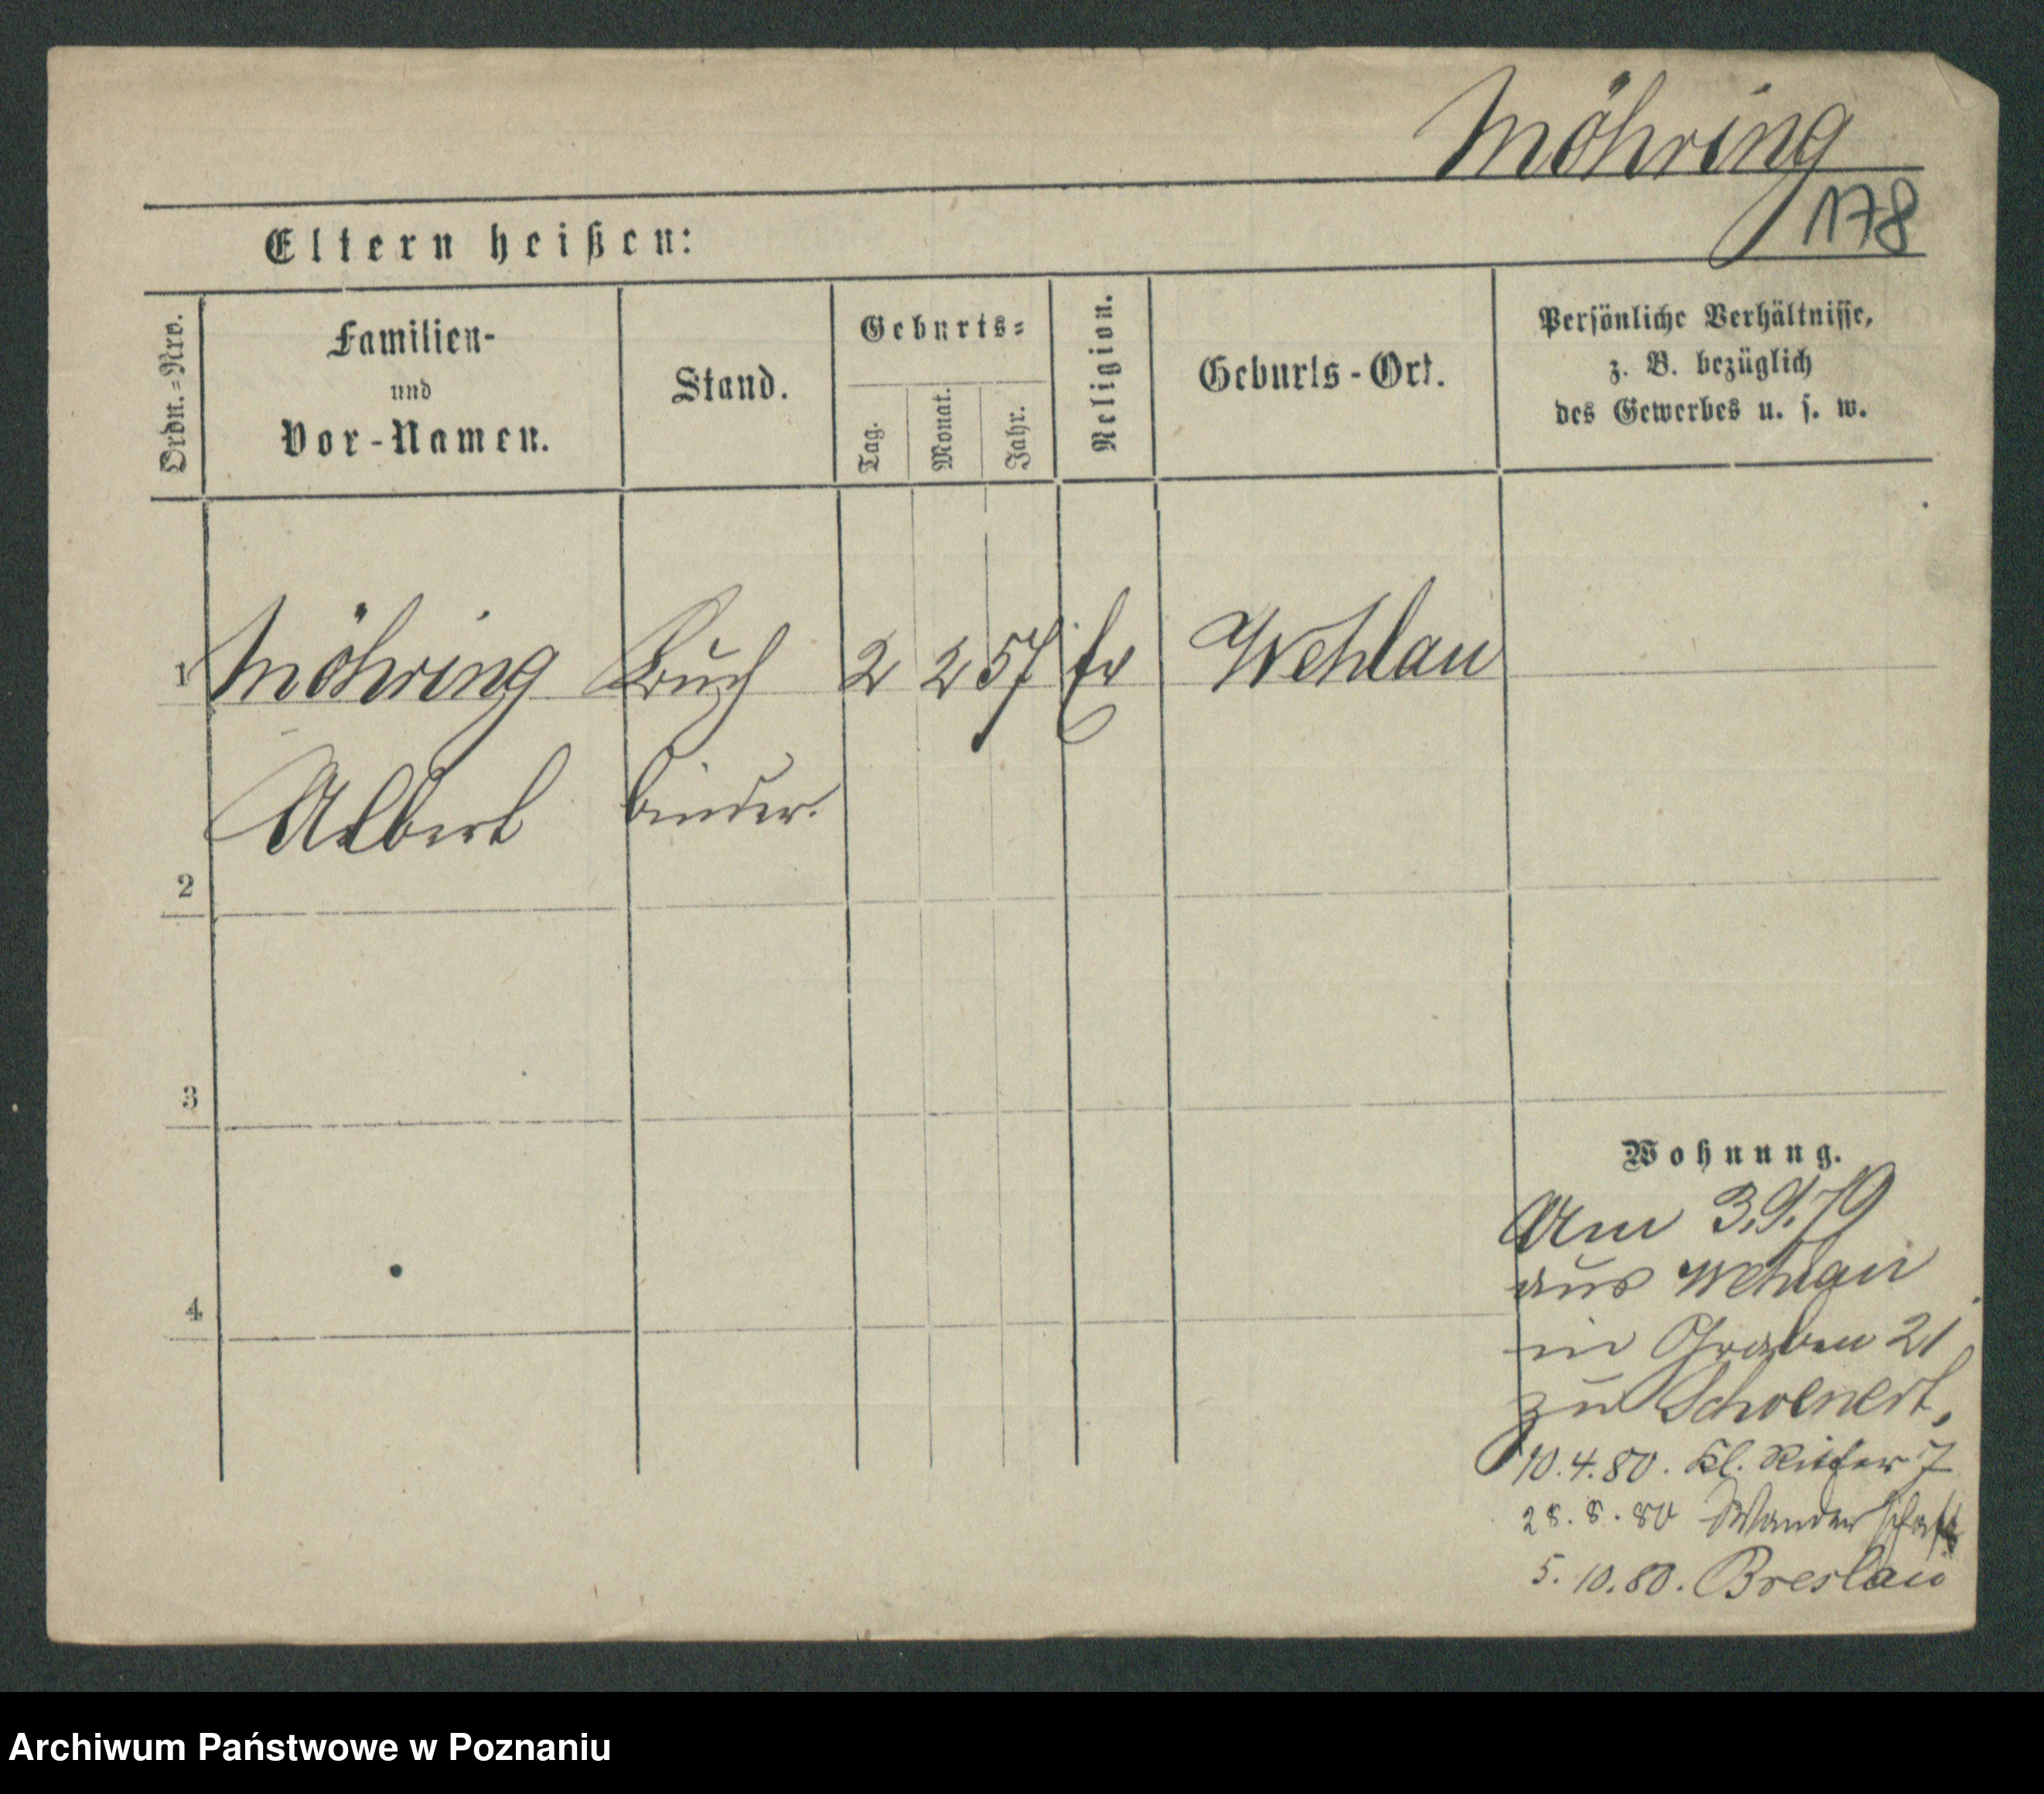 Möhring
178
Eltern heißen:
Ordn.=Nro.
Familien-
und
Vor-Namen.
Stand.
Geburts=
Tag.
Monat.
Jahr.
Religion.
Geburts-Ort.
Persönliche Verhältnisse,
z. B. bezüglich
des Gewerbes u. s. w.
1 Möhring Buch 2 2 57 Ev Wehlau
Albert binder.
2
3
Wohnung.
Am 3.9.79
aus Wehlau
4
in Graben 21
zu Schoenert,
10.4.80. Kl. Ritter 7
28.8.80 Wanderschaft
5.10.80. Breslau
Archiwum Państwowe w Poznaniu